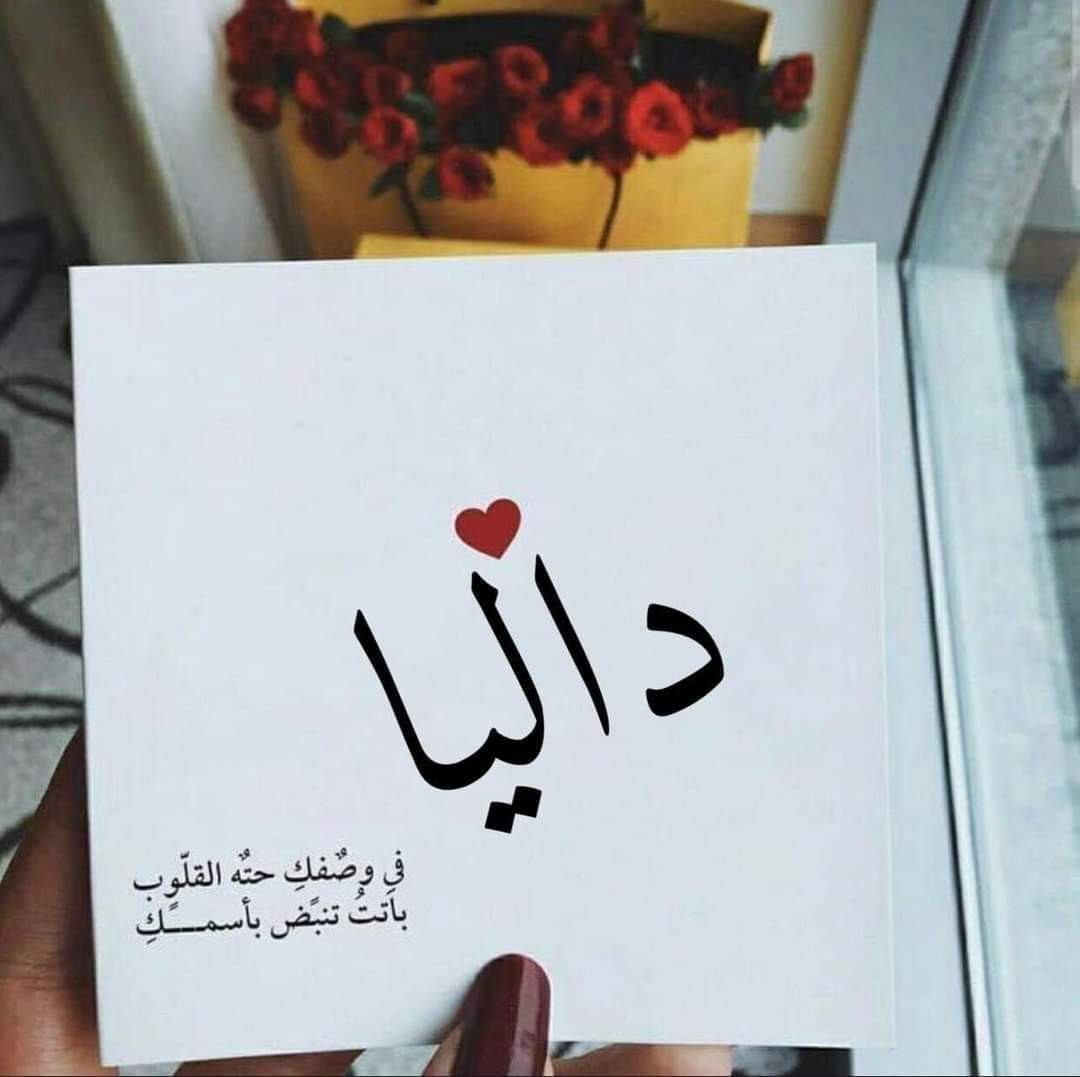 داليا
في وصٌفكِ حتٌه القلّوٍب
باَتتُ تنبًض بأسمــــًكِ